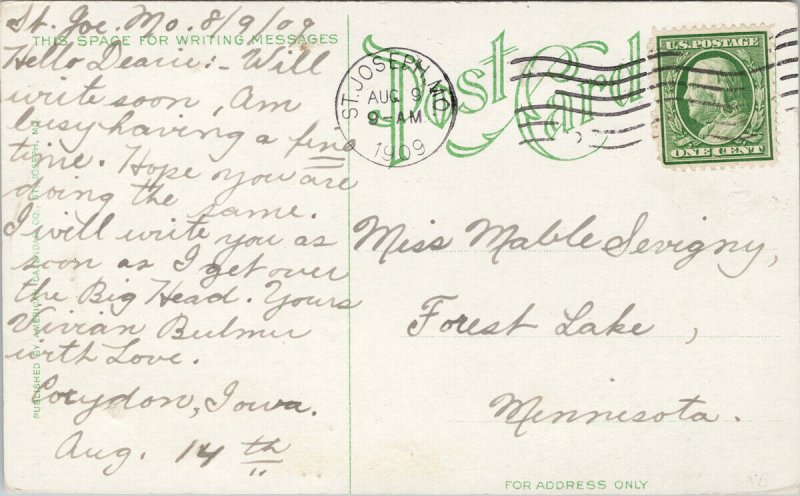 St. Joe. Mo. 8/9/09
THIS SPACE FOR WRITING MESSAGES
Hello Dearie:- Will
write soon, Am
busy having a fine
time. Hope you are
doing the same.
I will write you as
soon as I get over
the Big Head. Yours
Vivian Bulmer
with Love.
Corydon, Iowa.
Aug. 14th
PUBLISHED BY AMERICAN CARD CO., ST. JOSEPH, MO.
Post Card
ST. JOSEPH, MO.
AUG 9
9-AM
1909
U.S. POSTAGE
ONE CENT
Miss Mable Sevigny,
Forest Lake,
Minnesota.
FOR ADDRESS ONLY